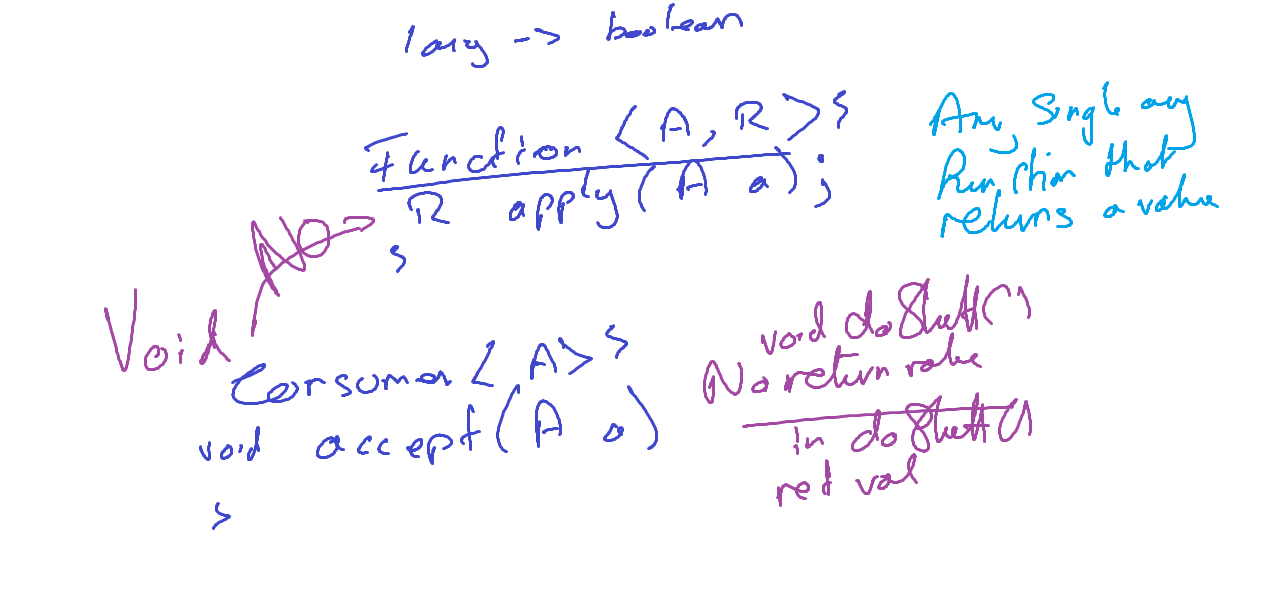 1 arg -> boolean
Function <A, R> {
R apply(A a);
}
Any single arg
function that
returns a value
NO
Void
Consumer <A> {
void accept(A a)
}
void doStuff()
No return value
in doStuff()
ret val